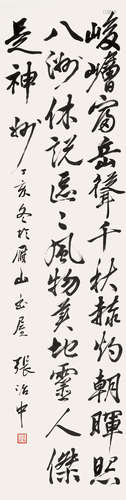 峻嶒富岳聳千秋赫灼朝暉照
八洲休說區區風物美地靈人傑
是神州
丁亥冬於雁山書屋
張治中